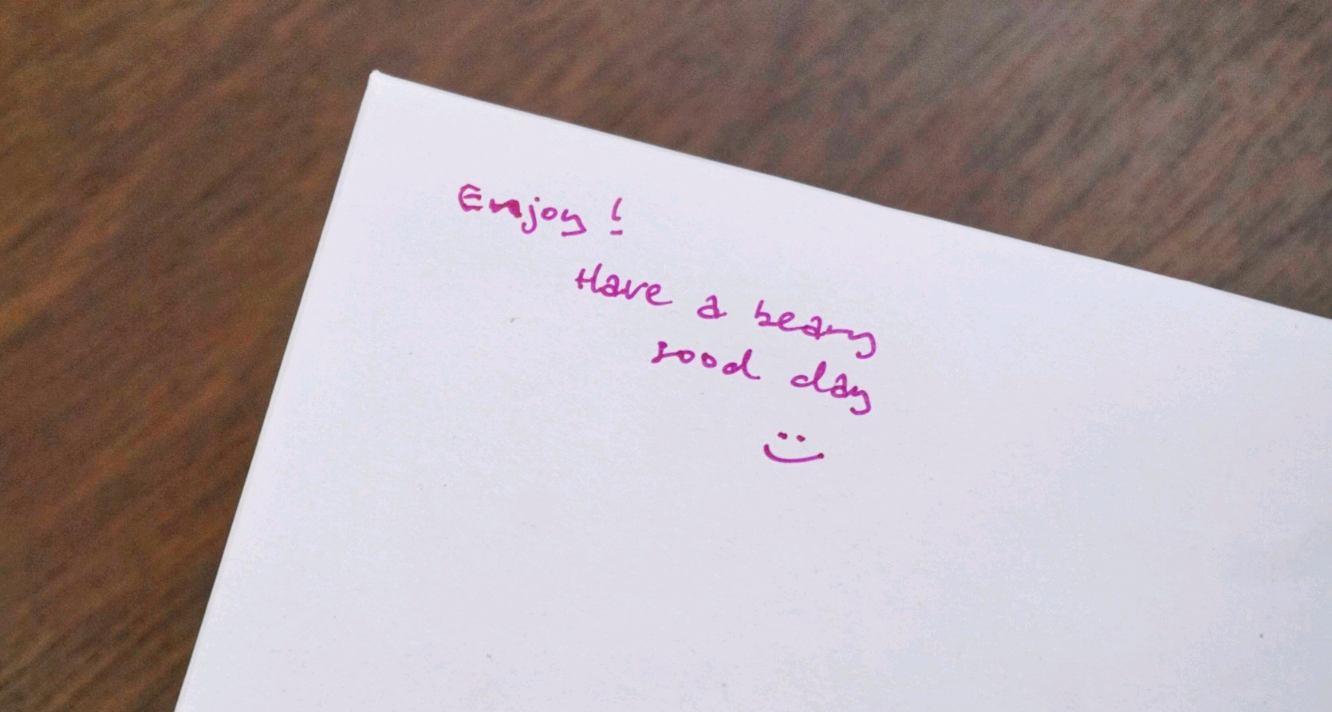 Enjoy!
Have a beary
good day